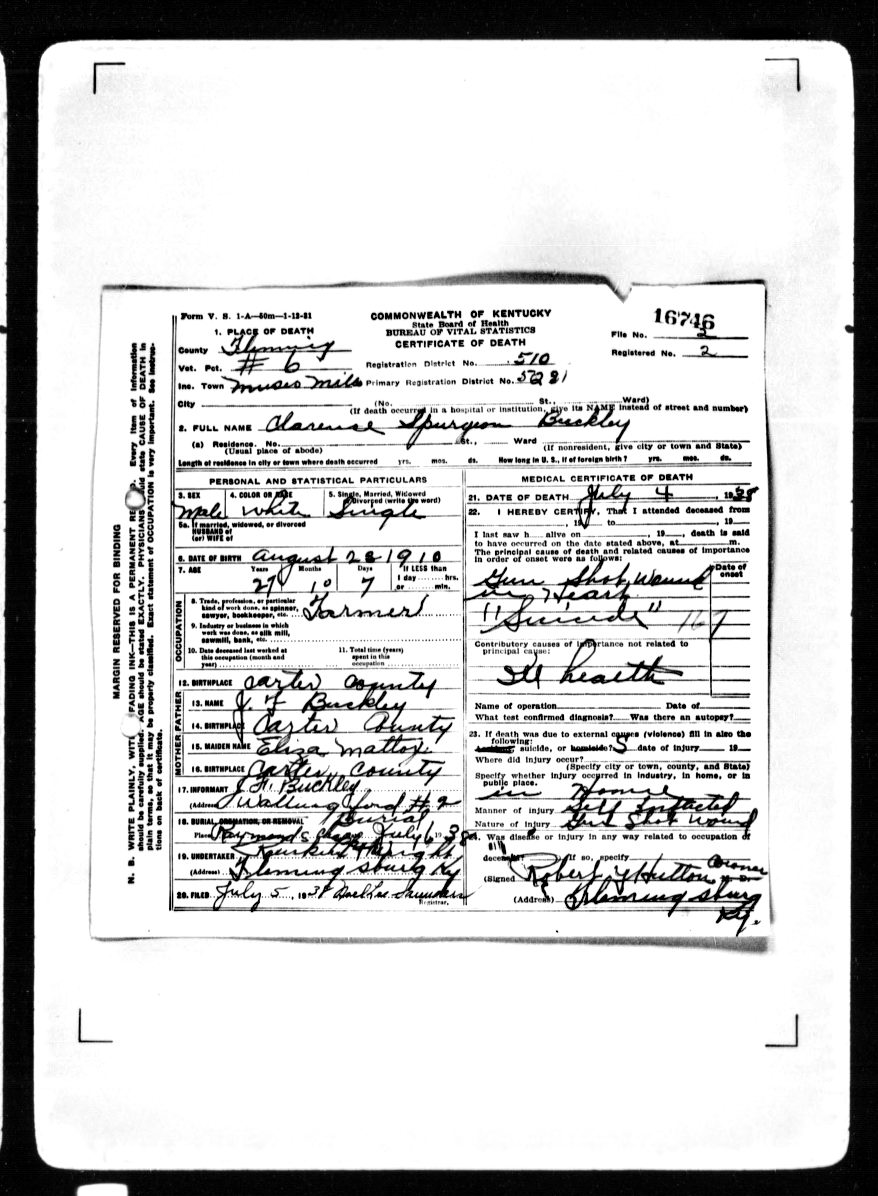 Form V. S. 1-A—50m—1-12-31
COMMONWEALTH OF KENTUCKY
State Board of Health
BUREAU OF VITAL STATISTICS
CERTIFICATE OF DEATH
16746
File No. 2
Registered No. 2
1. PLACE OF DEATH
County Fleming
Vot. Pct. # 6
Registration District No. 510
Inc. Town Muses Mills Primary Registration District No. 5281
City (No. St., Ward)
(If death occurred in a hospital or institution, give its NAME instead of street and number)
2. FULL NAME Clarense Spurgeon Buckley
(a) Residence. No. St., Ward
(Usual place of abode) (If nonresident, give city or town and State)
Length of residence in city or town where death occurred yrs. mos. ds. How long in U. S., if of foreign birth? yrs. mos. ds.
PERSONAL AND STATISTICAL PARTICULARS
3. SEX 4. COLOR OR RACE 5. Single, Married, Widowed
Divorced (write the word)
Male White Single
5a. If married, widowed, or divorced
HUSBAND of
(or) WIFE of
6. DATE OF BIRTH August 28 1910
7. AGE Years Months Days If LESS than
1 day hrs.
or min.
27 10 7
OCCUPATION
8. Trade, profession, or particular
kind of work done, as spinner,
sawyer, bookkeeper, etc. Farmer
9. Industry or business in which
work was done, as silk mill,
sawmill, bank, etc.
10. Date deceased last worked at
this occupation (month and
year)
11. Total time (years)
spent in this
occupation
12. BIRTHPLACE Carter County
FATHER
13. NAME J. F Buckley
14. BIRTHPLACE Carter County
MOTHER
15. MAIDEN NAME Eliza
16. BIRTHPLACE Carter County
17. INFORMANT Buckley
(Address) Wallingford # 2
18. BURIAL, CREMATION, OR REMOVAL Burial
Place Raymond July 6 1938
19. UNDERTAKER
(Address) Flemingsburg Ky
20. FILED July 5, 1938 Saunders
Registrar.
MEDICAL CERTIFICATE OF DEATH
21. DATE OF DEATH July 4, 1938
22. I HEREBY CERTIFY, That I attended deceased from
, 19 to , 19
I last saw h alive on , 19 , death is said
to have occurred on the date stated above, at m.
The principal cause of death and related causes of importance
in order of onset were as follows:
Date of
onset
Gun Shot Wound
in Heart
"Suicide" 167
Contributory causes of importance not related to
principal cause:
Ill health
Name of operation Date of
What test confirmed diagnosis? Was there an autopsy?
23. If death was due to external causes (violence) fill in also the
following:
suicide, or homicide? S date of injury 19
Where did injury occur?
(Specify city or town, county, and State)
Specify whether injury occurred in industry, in home, or in
public place.
in Home
Manner of injury Self Inflicted
Nature of injury Gun Shot Wound
24. Was disease or injury in any way related to occupation of
deceased? If so, specify
(Signed Robert Hutton Coroner M. D.
(Address) Flemingsburg
Ky.
MARGIN RESERVED FOR BINDING